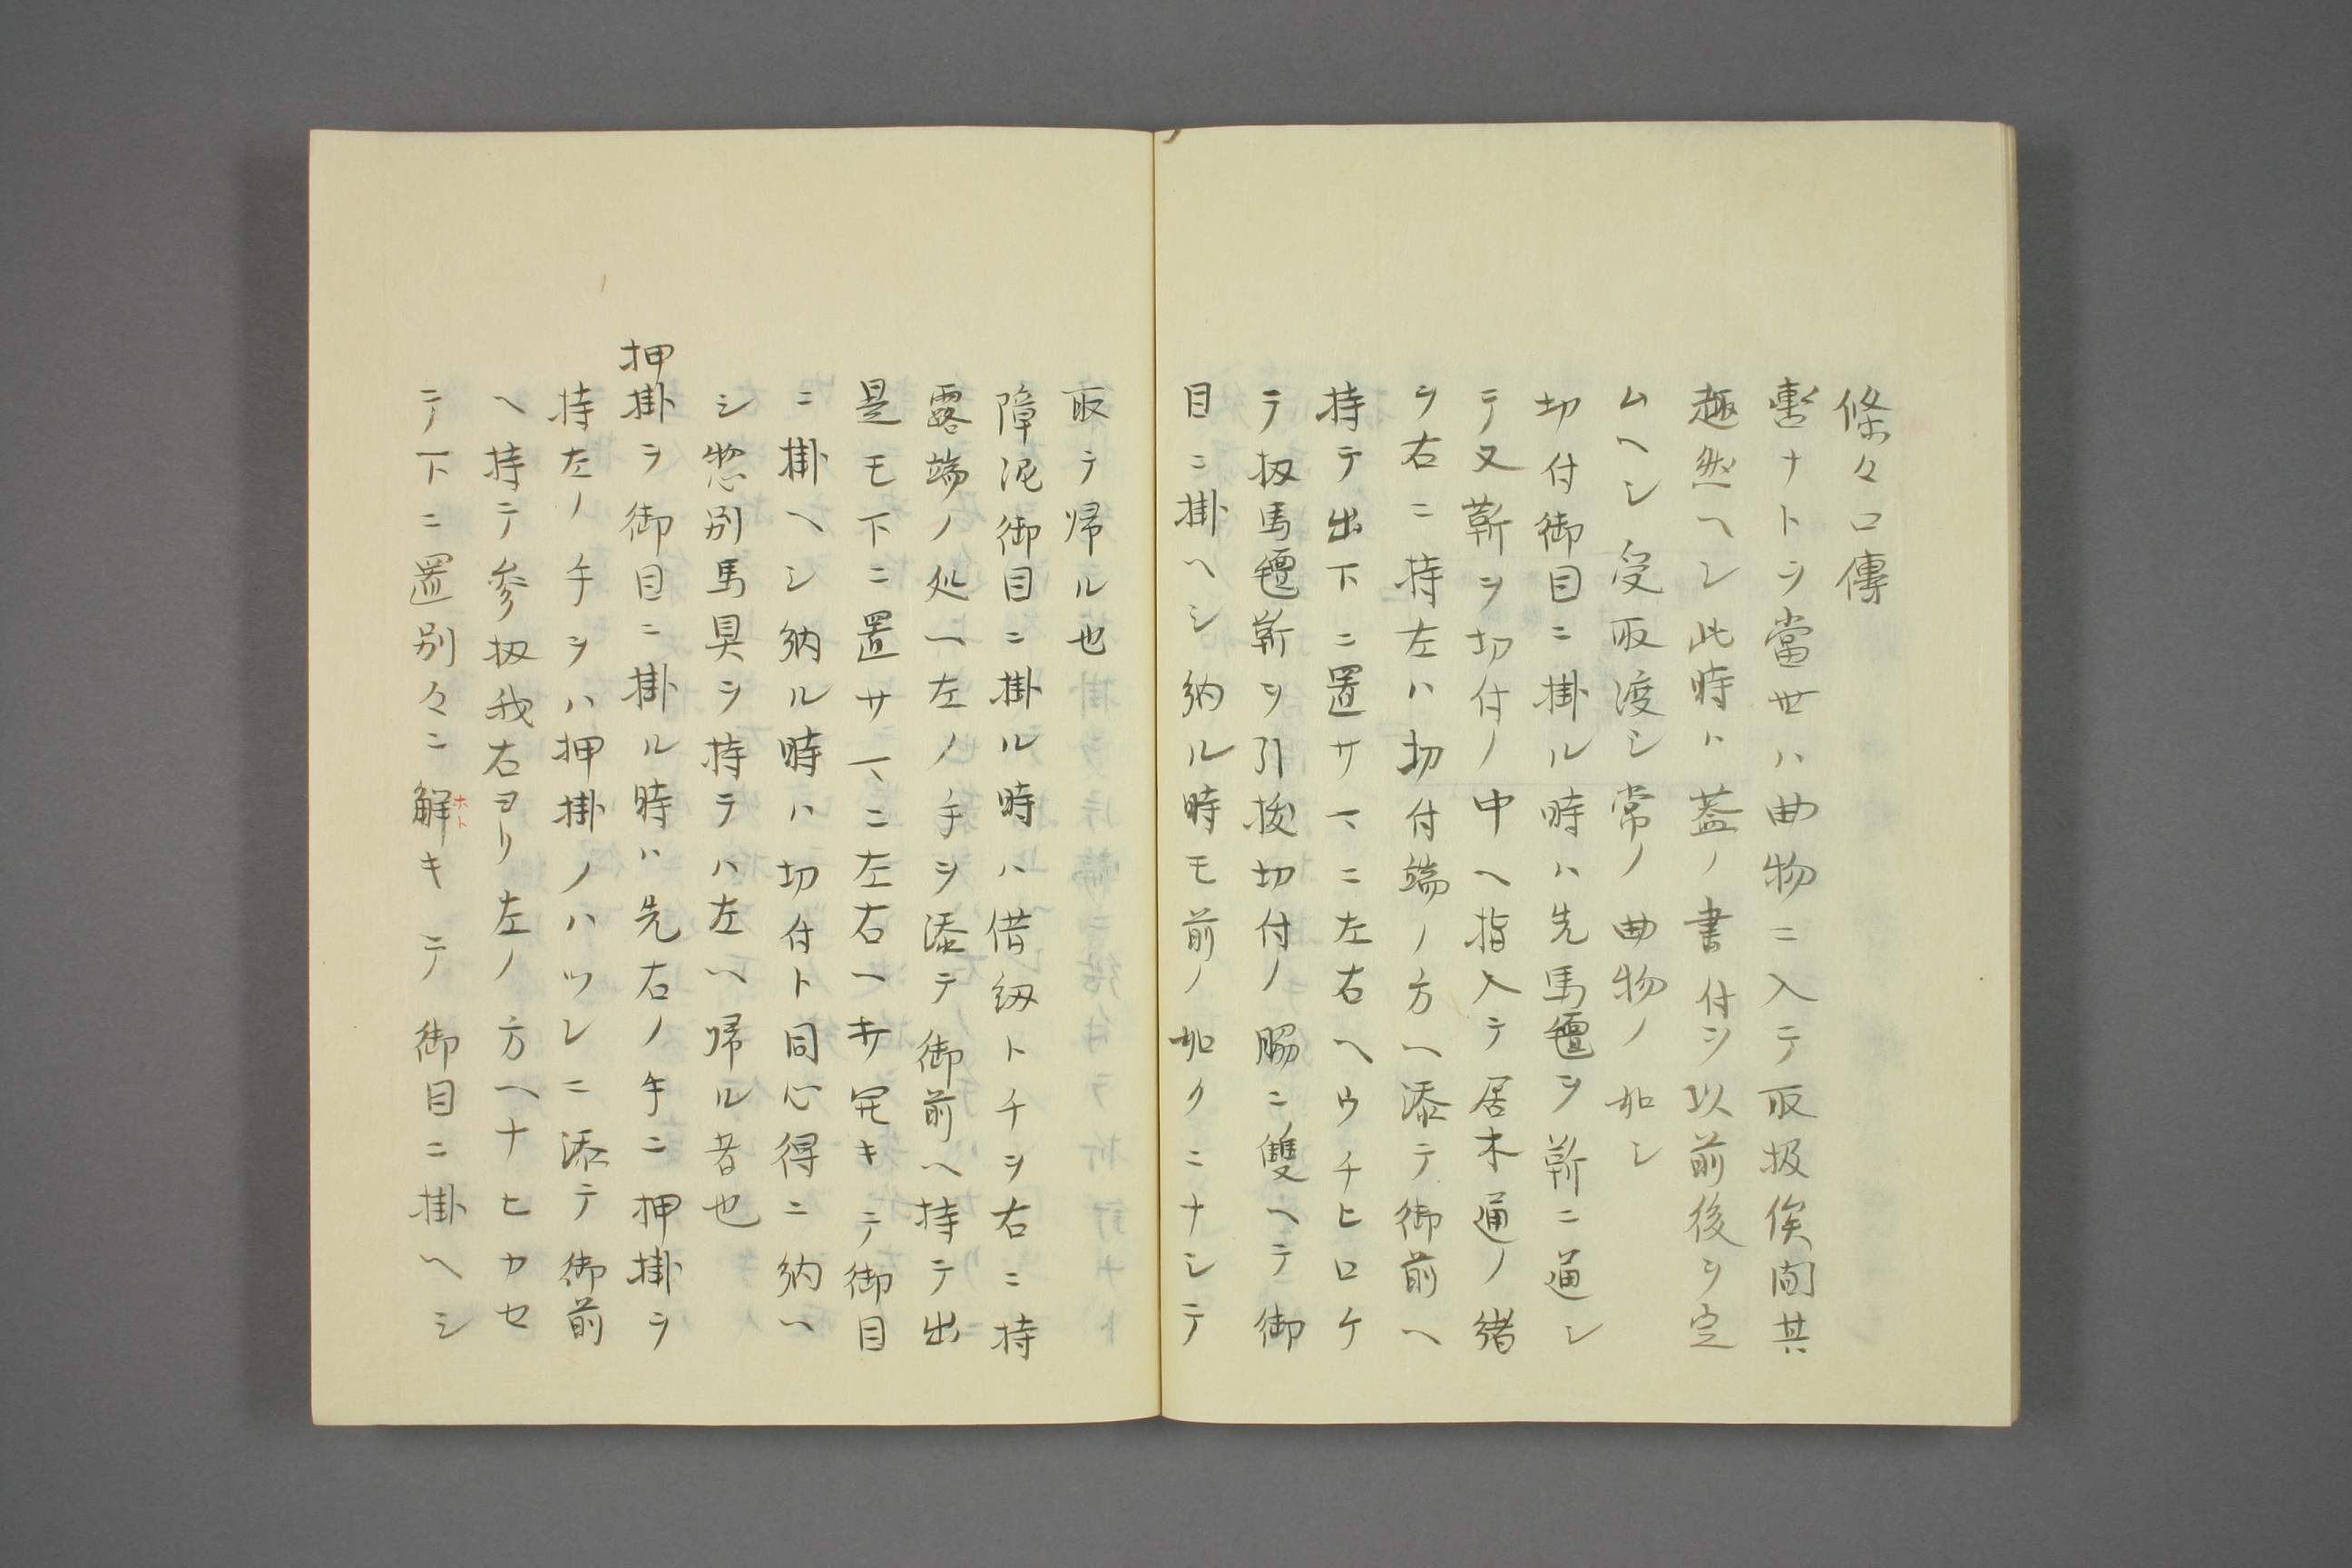 條々口傳
轡ナトヲ當世ハ曲物ニ入テ取扱候間其
趣然ヘシ此時ハ蓋ノ書付ヲ以前後ヲ定
ムヘシ受取渡シ常ノ曲物ノ如シ
切付御目ニ掛ル時ハ先馬氊ヲ靳ニ通シ
テ又靳ヲ切付ノ中ヘ指入テ居木通ノ緒
ヲ右ニ持左ハ切付端ノ方ヘ添テ御前ヘ
持テ出下ニ置サマニ左右ヘウチヒロケ
テ扨馬氊靳ヲ引抜切付ノ脇ニ雙ヘテ御
目ニ掛ヘシ納ル時モ前ノ如クニナシテ
取テ帰ル也
障泥御目ニ掛ル時ハ借紐トチヲ右ニ持
露端ノ処ヘ左ノ手ヲ添テ御前ヘ持テ出
是モ下ニ置サマニ左右ヘサキテ御目
ニ掛ヘシ納ル時ハ切付ト同心得ニ納ヘ
シ惣別馬具ヲ持テハ左ヘ帰ル者也
押掛ヲ御目ニ掛ル時ハ先右ノ手ニ押掛ヲ
持左ノ手ヲハ押掛ノハツレニ添テ御前
ヘ持テ参扨我右ヨリ左ノ方ヘナヒカセ
テ下ニ置別々ニ解キテ御目ニ掛ヘシ
ホト